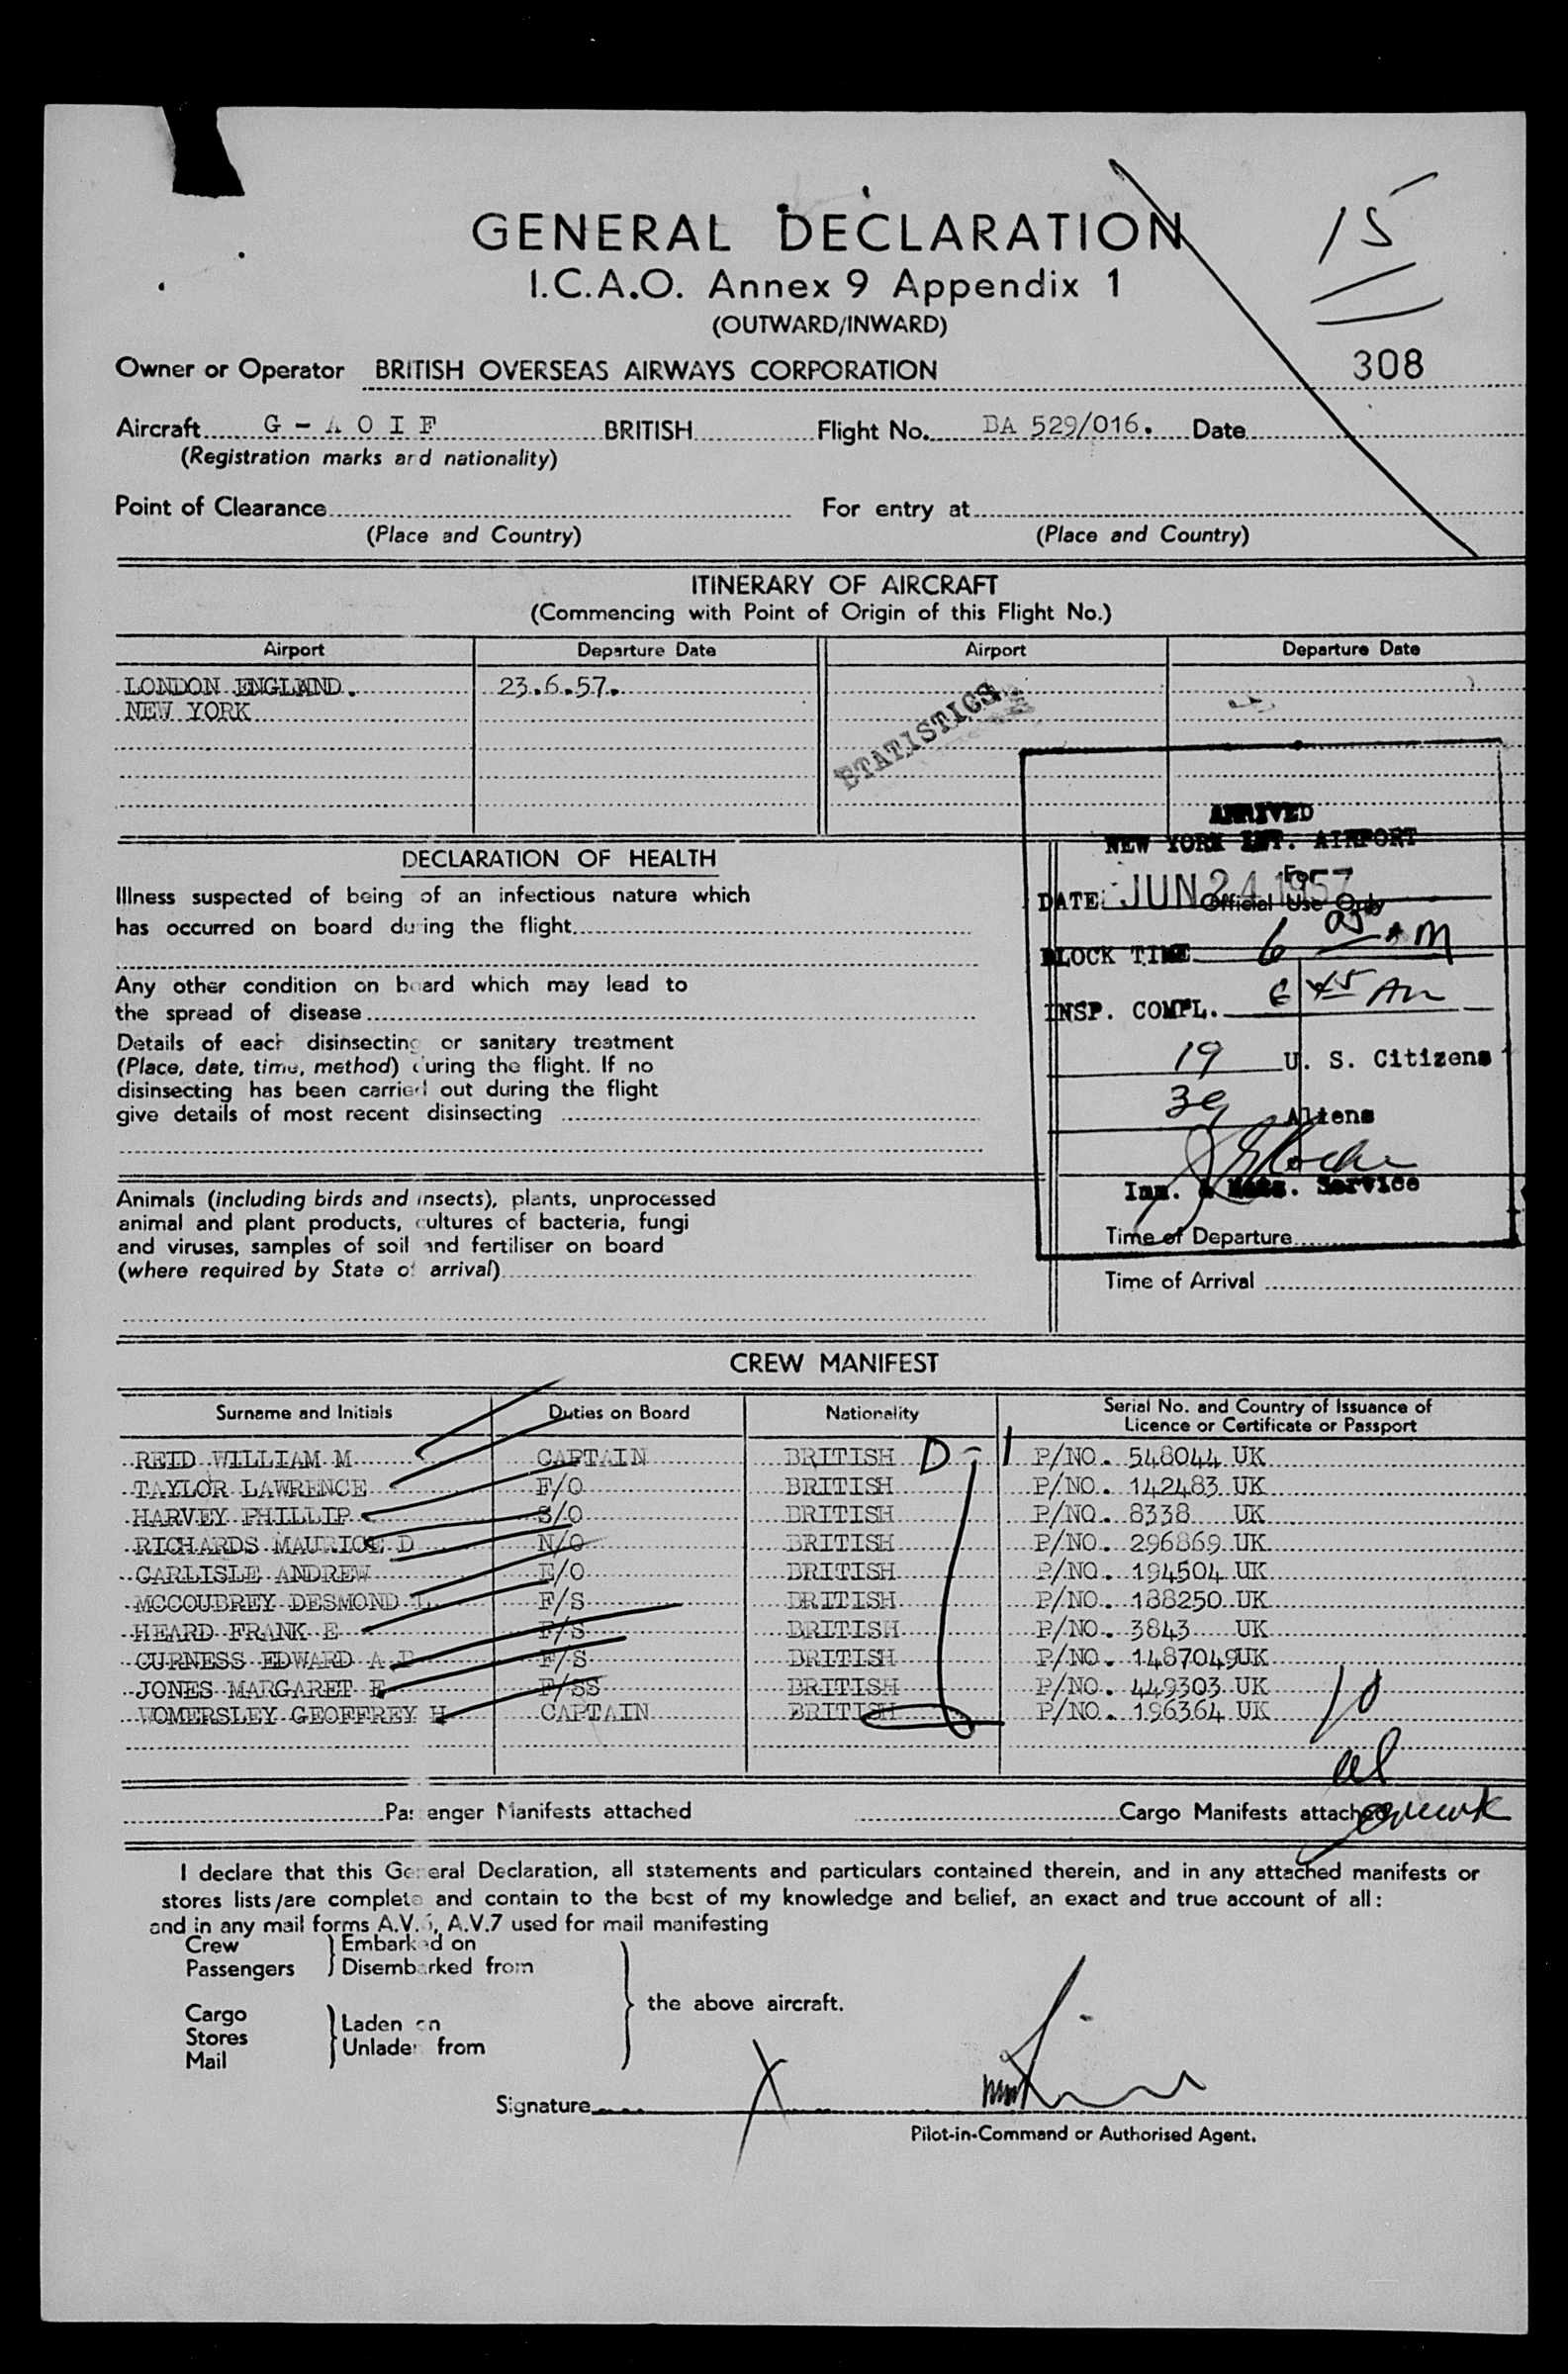 15
GENERAL DECLARATION
I.C.A.O. Annex 9 Appendix 1
(OUTWARD/INWARD)
Owner or Operator BRITISH OVERSEAS AIRWAYS CORPORATION 308
Aircraft G - A O I F BRITISH Flight No. BA 529/016. Date
(Registration marks and nationality)
Point of Clearance For entry at
(Place and Country) (Place and Country)
ITINERARY OF AIRCRAFT
(Commencing with Point of Origin of this Flight No.)
Airport Departure Date Airport Departure Date
LONDON ENGLAND. 23.6.57.
NEW YORK
STATISTICS
ARRIVED
NEW YORK INT. AIRPORT
For
Official Use Only
DATE JUN 24 1957
BLOCK TIME 6 05 AM
INSP. COMPL. 6 45 AM
19 U. S. Citizens
39 Aliens
Imm. & Natz. Service
Time of Departure
Time of Arrival
DECLARATION OF HEALTH
Illness suspected of being of an infectious nature which
has occurred on board during the flight
Any other condition on board which may lead to
the spread of disease
Details of each disinsecting or sanitary treatment
(Place, date, time, method) during the flight. If no
disinsecting has been carried out during the flight
give details of most recent disinsecting
Animals (including birds and insects), plants, unprocessed
animal and plant products, cultures of bacteria, fungi
and viruses, samples of soil and fertiliser on board
(where required by State of arrival)
CREW MANIFEST
Surname and Initials Duties on Board Nationality Serial No. and Country of Issuance of
Licence or Certificate or Passport
REID WILLIAM M CAPTAIN BRITISH D-1 P/NO. 548044 UK
TAYLOR LAWRENCE F/O BRITISH P/NO. 142483 UK
HARVEY PHILLIP S/O BRITISH P/NO. 8338 UK
RICHARDS MAURICE D N/O BRITISH P/NO. 296869 UK
CARLISLE ANDREW E/O BRITISH P/NO. 194504 UK
MCCOUBREY DESMOND L F/S BRITISH P/NO. 188250 UK
HEARD FRANK E F/S BRITISH P/NO. 3843 UK
CURNESS EDWARD A P F/S BRITISH P/NO. 1487049UK
JONES MARGARET E F/SS BRITISH P/NO. 449303 UK
WOMERSLEY GEOFFREY H CAPTAIN BRITISH P/NO. 196364 UK
10
Passenger Manifests attached Cargo Manifests attached
I declare that this General Declaration, all statements and particulars contained therein, and in any attached manifests or
stores lists/are complete and contain to the best of my knowledge and belief, an exact and true account of all:
and in any mail forms A.V.6, A.V.7 used for mail manifesting
Crew Embarked on
Passengers Disembarked from
the above aircraft.
Cargo
Stores Laden on
Mail Unladen from
Signature X
Pilot-in-Command or Authorised Agent.